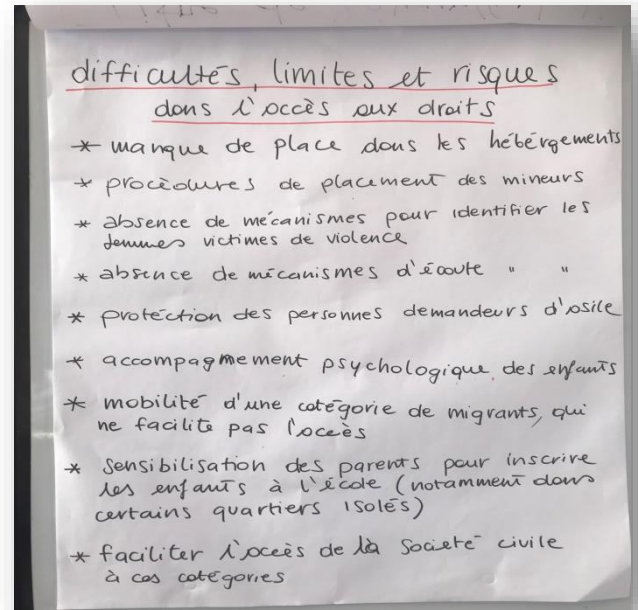 difficultés, limites et risques
dans l'accès aux droits
* manque de place dans les hébérgements
* procédures de placement des mineurs
* absence de mécanismes pour identifier les
femmes victimes de violence
* absence de mécanismes d'écoute " "
* protéction des personnes demandeurs d'asile
* accompagnement psychologique des enfants
* mobilité d'une catégorie de migrants, qui
ne facilite pas l'accès
* Sensibilisation des parents pour inscrire
les enfants à l'école (notamment dans
certains quartiers isolés)
* faciliter l'accès de la Société civile
à cas catégories